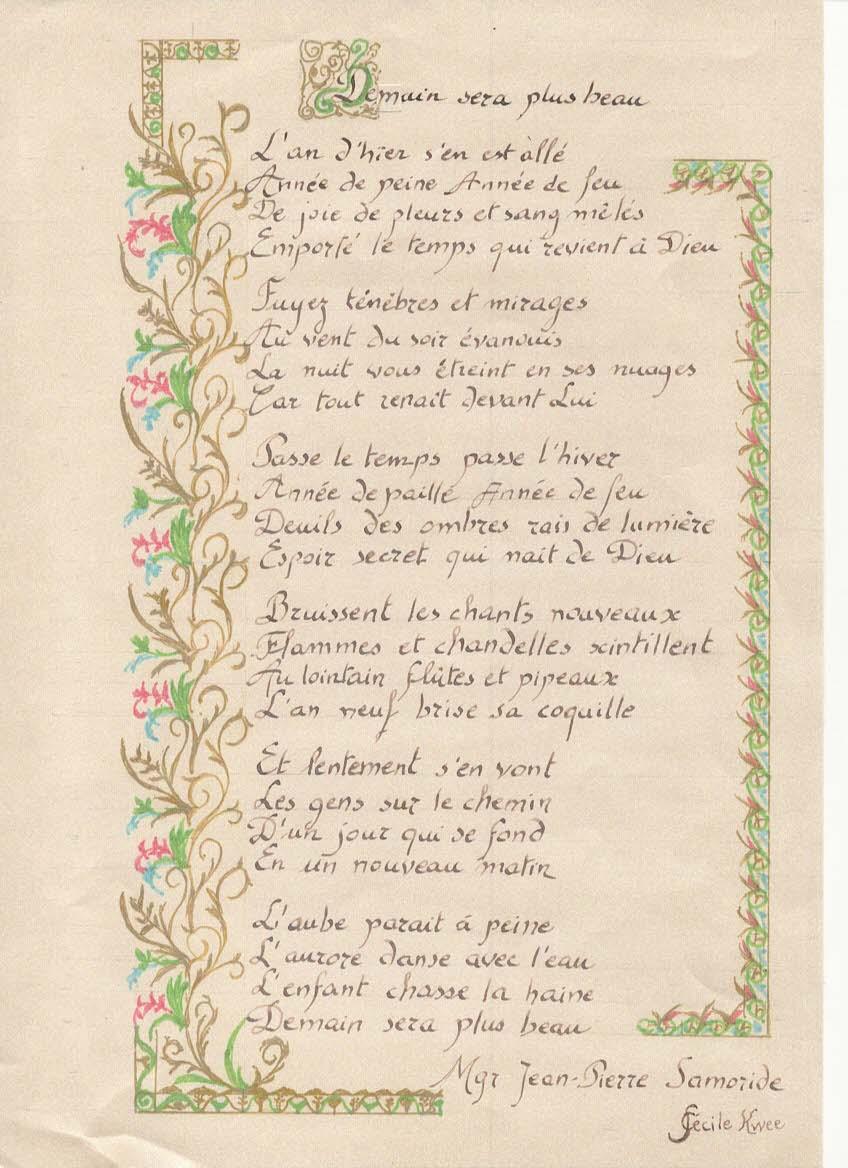 Demain sera plus beau
L'an d'hier s'en est àllé
Année de peine Année de feu
De joie de pleurs et sang mêlés
Emporté le temps qui revient à Dieu
Fuyez ténèbres et mirages
Au vent du soir évanouis
La nuit vous étreint en ses nuages
Car tout renait devant Lui
Passe le temps passe l'hiver
Année de paille Année de feu
Deuils des ombres rais de lumière
Espoir secret qui nait de Dieu
Bruissent les chants nouveaux
Flammes et chandelles scintillent
Au lointain flûtes et pipeaux
L'an neuf brise sa coquille
Et lentement s'en vont
Les gens sur le chemin
D'un jour qui se fond
En un nouveau matin
L'aube parait á peine
L'aurore danse avec l'eau
L'enfant chasse la haine
Demain sera plus beau
Mgr Jean-Pierre Samoride
Cécile Kwee